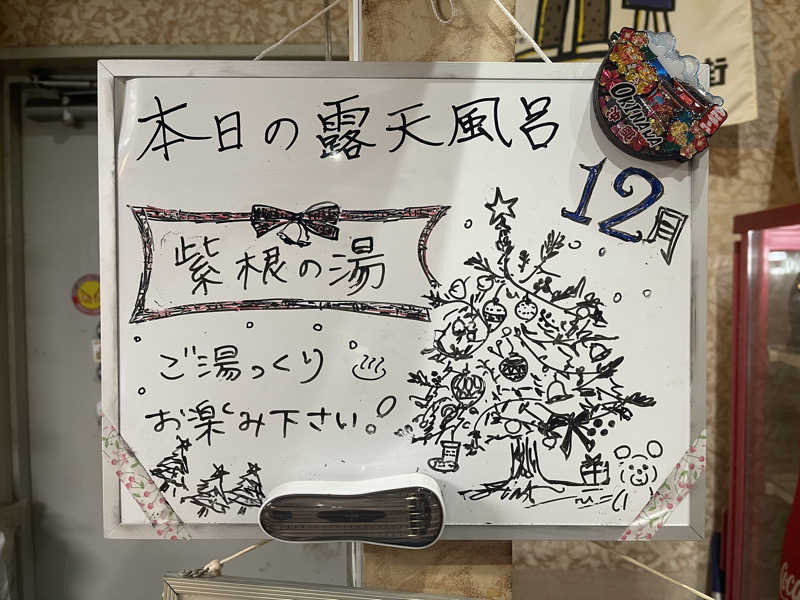 本日の露天風呂
OKINAWA
12月
紫根の湯
ご湯っくり
お楽しみ下さい。